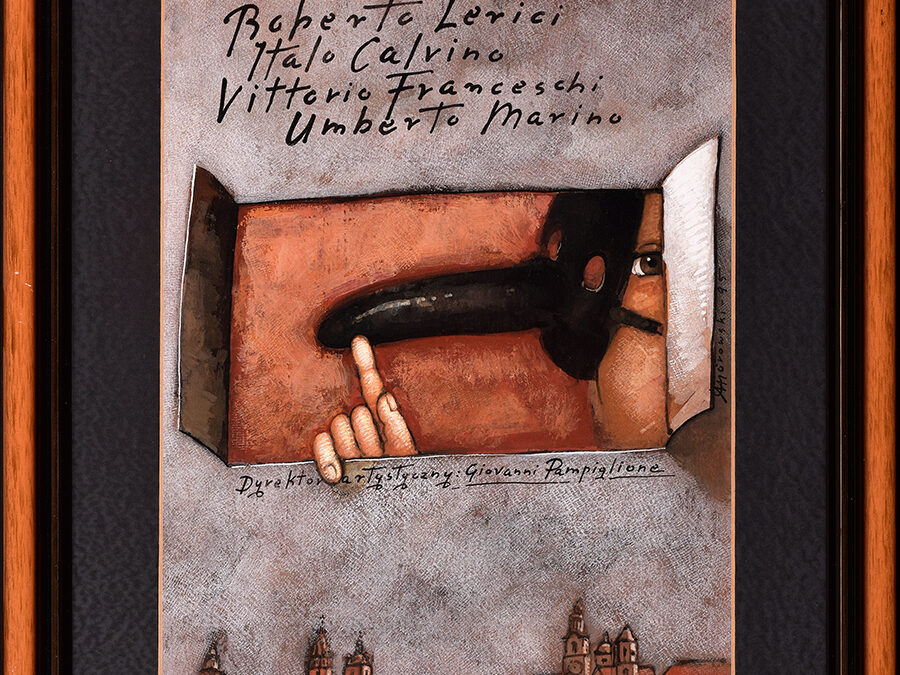 Roberto Lerici
Italo Calvino
Vittorio Franceschi
Umberto Marino
Dyrektor artystyczny: Giovanni Pampiglione